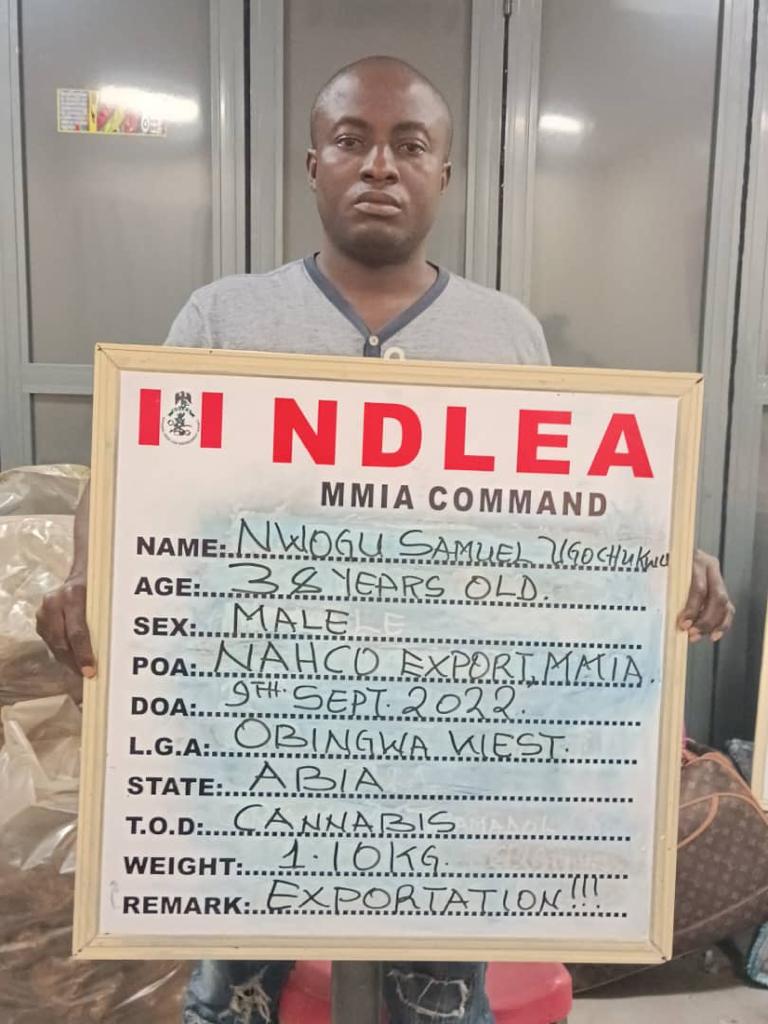 NDLEA
MMIA COMMAND
NAME: NWOGU SAMUEL UGOCHUKWU
AGE: 38 YEARS OLD.
SEX: MALE
POA: NAHCO EXPORT, MMIA.
DOA: 9TH. SEPT. 2022.
L.G.A: OBINGWA WEST.
STATE: ABIA
T.O.D: CANNABIS
WEIGHT: 1.10KG.
REMARK: EXPORTATION!!!